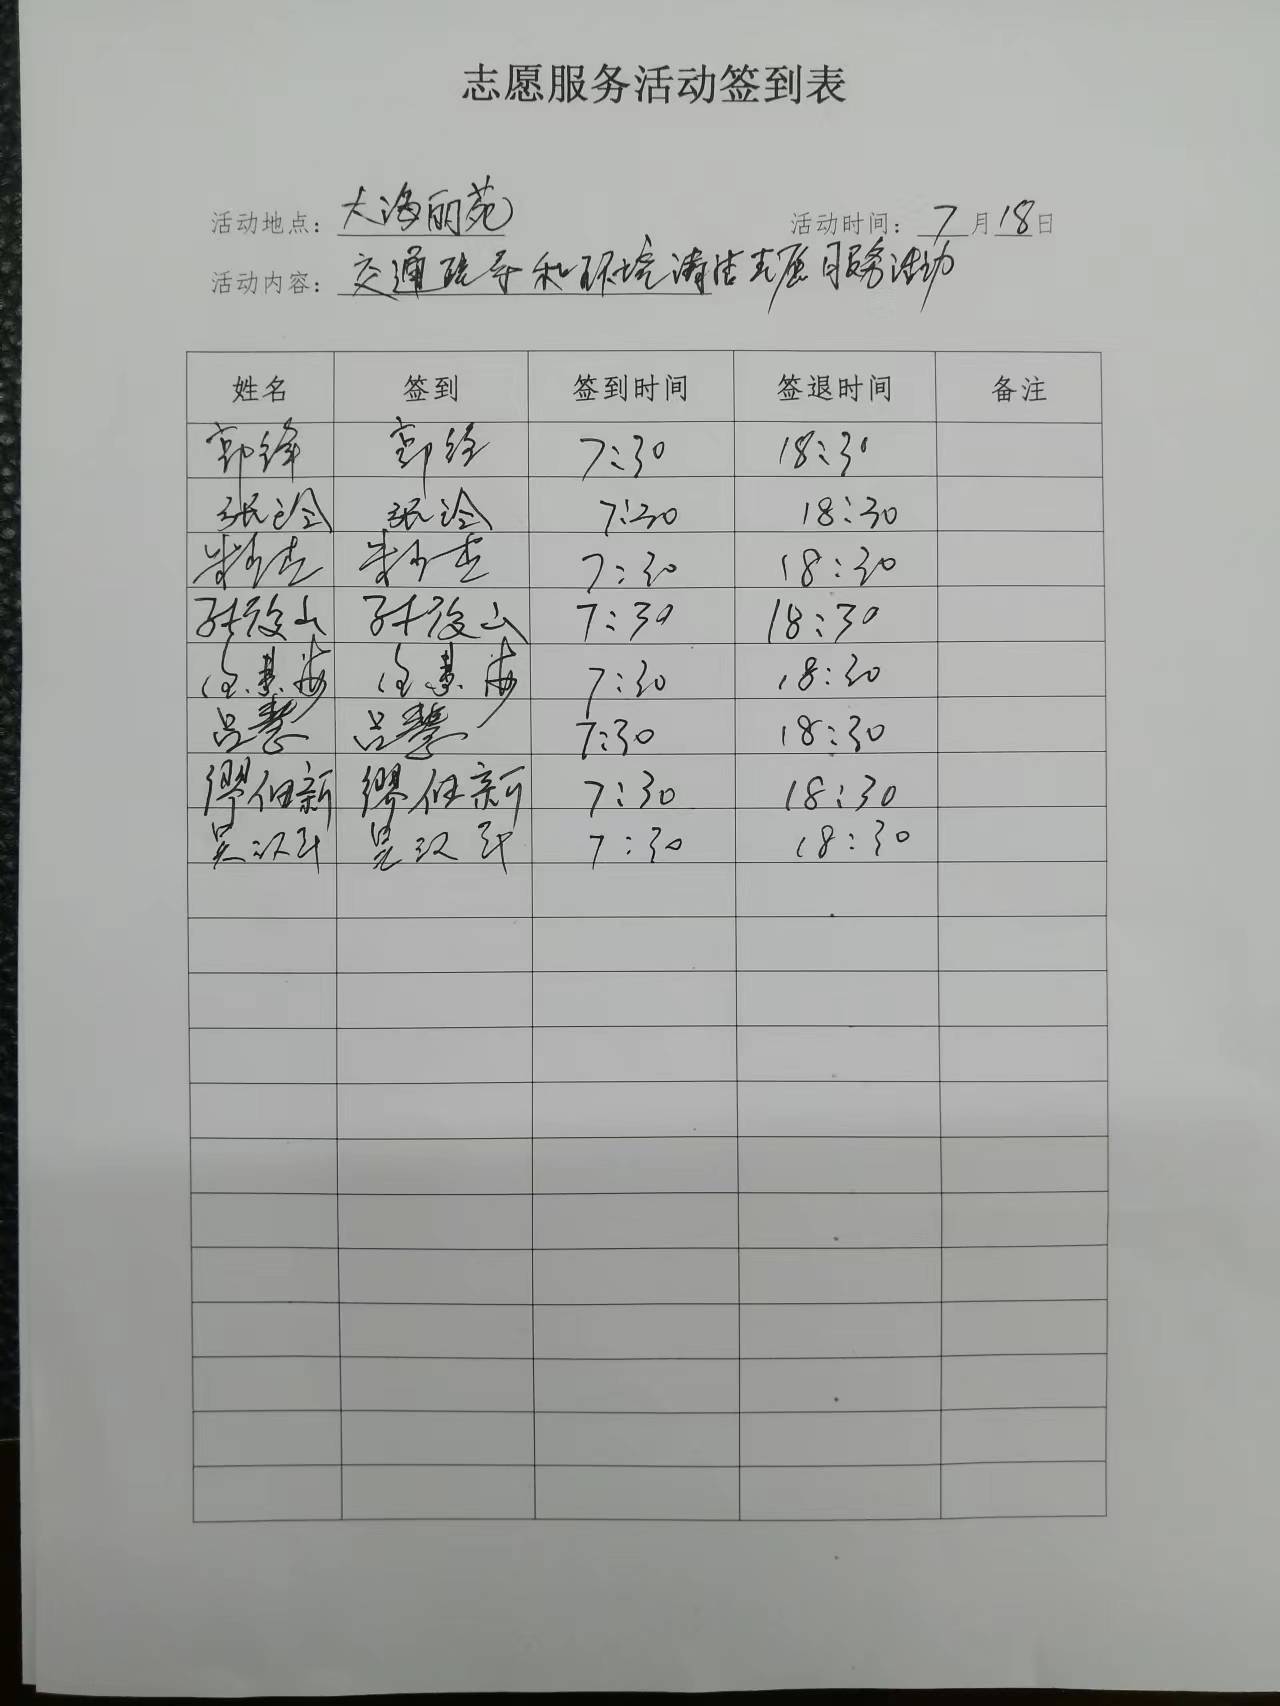 志愿服务活动签到表
活动地点：大海丽苑 活动时间：7月18日
活动内容：交通疏导和环境清洁志愿服务活动
姓名 签到 签到时间 签退时间 备注
郭锋 郭锋 7:30 18:30
张玲 张玲 7:30 18:30
7:30 18:30
孙俊山 孙俊山 7:30 18:30
7:30 18:30
吕慧 吕慧 7:30 18:30
缪伯新 缪伯新 7:30 18:30
吴汉 吴汉 7:30 18:30